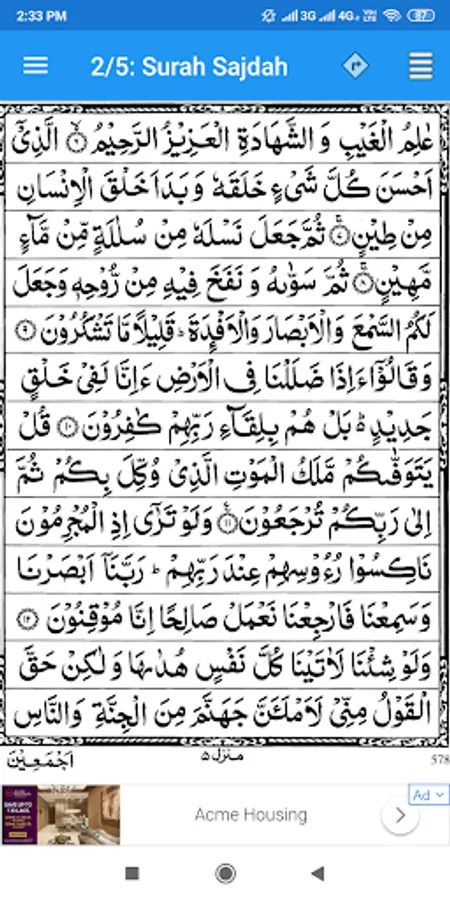 2:33 PM 3G 4G 87
2/5: Surah Sajdah
عٰلِمُ الْغَيْبِ وَ الشَّهَادَةِ الْعَزِيْزُ الرَّحِيْمُ ۙ‏﴿۶﴾ الَّذِيْۤ
اَحْسَنَ كُلَّ شَيْءٍ خَلَقَهٗ وَ بَدَاَ خَلْقَ الْاِنْسَانِ
مِنْ طِيْنٍ ۚ‏﴿۷﴾ ثُمَّ جَعَلَ نَسْلَهٗ مِنْ سُلٰلَةٍ مِّنْ مَّآءٍ
مَّهِيْنٍ ۚ‏﴿۸﴾ ثُمَّ سَوّٰىهُ وَ نَفَخَ فِيْهِ مِنْ رُّوْحِهٖ وَجَعَلَ
لَكُمُ السَّمْعَ وَالْاَبْصَارَ وَالْاَفْـِٕدَةَ ؕ قَلِيْلًا مَّا تَشْكُرُوْنَ ﴿۹﴾
وَ قَالُوْۤا ءَاِذَا ضَلَلْنَا فِي الْاَرْضِ ءَاِنَّا لَفِيْ خَلْقٍ
جَدِيْدٍ ؕ۬ بَلْ هُمْ بِلِقَآءِ رَبِّهِمْ كٰفِرُوْنَ ﴿۱۰﴾ قُلْ
يَتَوَفّٰىكُمْ مَّلَكُ الْمَوْتِ الَّذِيْ وُكِّلَ بِكُمْ ثُمَّ
اِلٰى رَبِّكُمْ تُرْجَعُوْنَ ﴿۱۱﴾ وَلَوْ تَرٰٓى اِذِ الْمُجْرِمُوْنَ
نَاكِسُوْا رُءُوْسِهِمْ عِنْدَ رَبِّهِمْ ؕ رَبَّنَاۤ اَبْصَرْنَا
وَسَمِعْنَا فَارْجِعْنَا نَعْمَلْ صَالِحًا اِنَّا مُوْقِنُوْنَ ﴿۱۲﴾
وَلَوْ شِئْنَا لَاٰتَيْنَا كُلَّ نَفْسٍ هُدٰىهَا وَ لٰكِنْ حَقَّ
الْقَوْلُ مِنِّيْ لَاَمْلَـَٔنَّ جَهَنَّمَ مِنَ الْجِنَّةِ وَالنَّاسِ
اَجْمَعِيْنَ منزل ۵ 578
Ad
Acme Housing